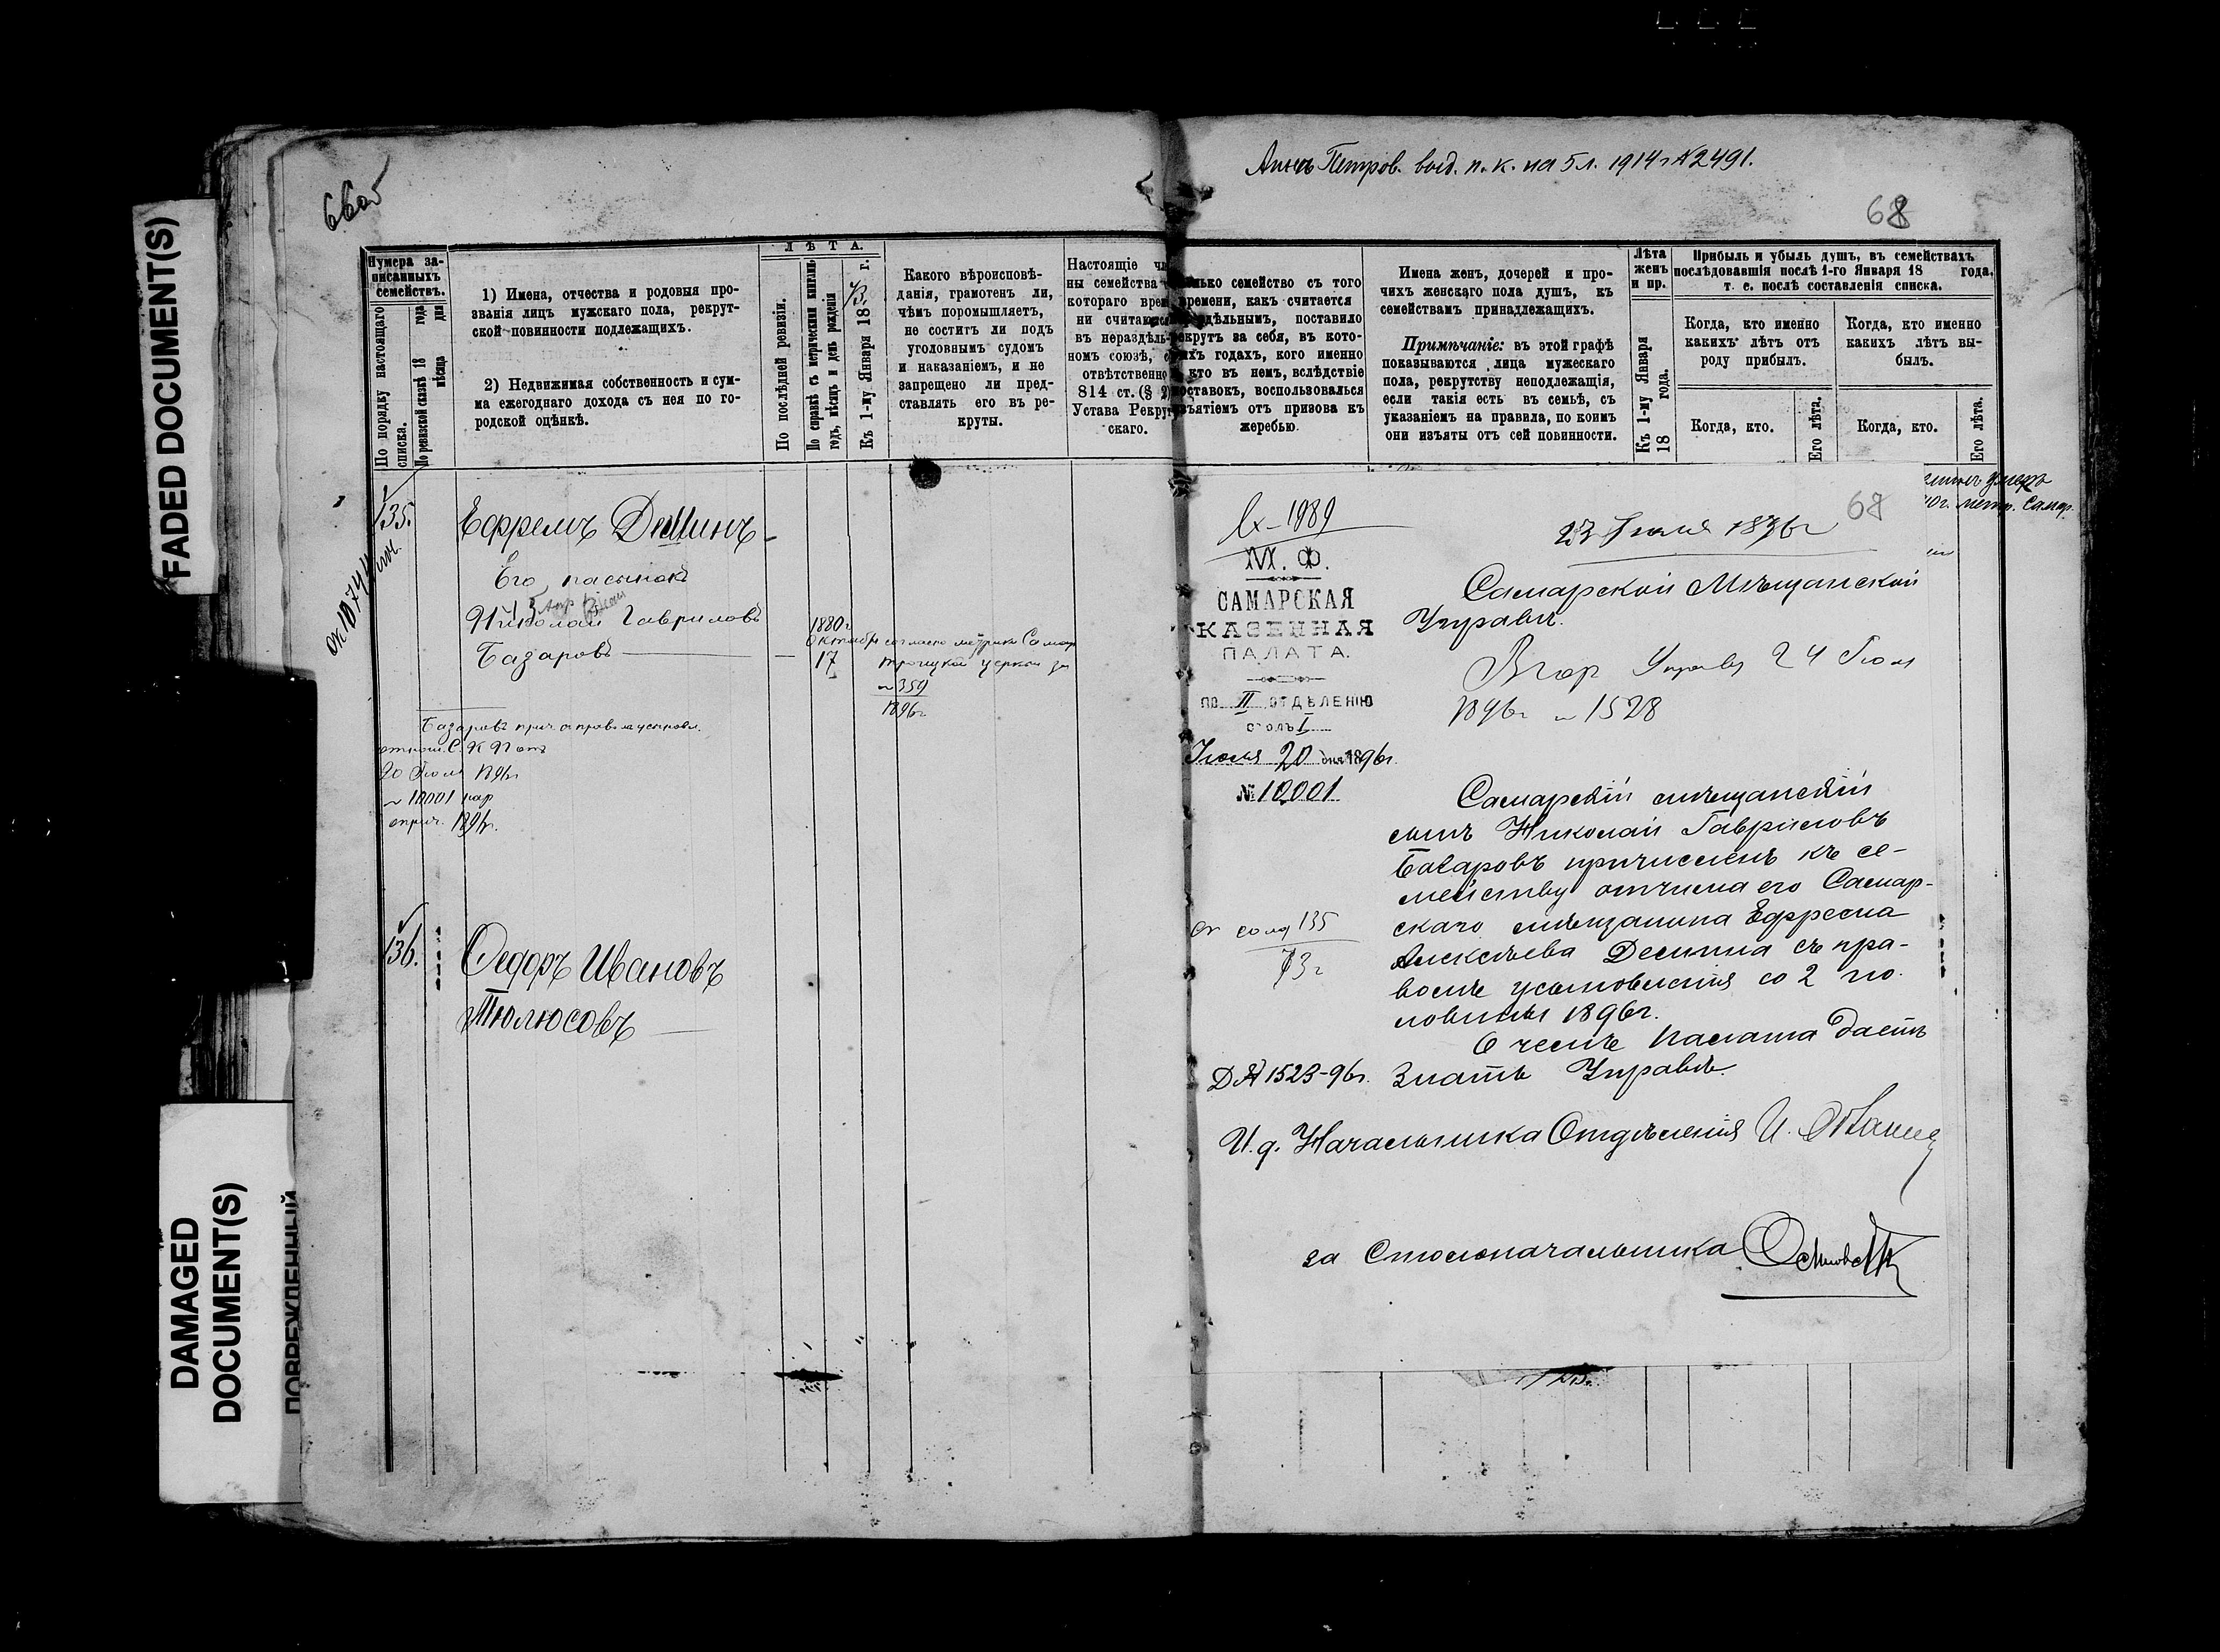 Аннѣ Петров. выд. п. к. на 5 л. 1914 г № 2491.
66об
68
FADED DOCUMENT(S)
DAMAGED
DOCUMENT(S)
ПОВРЕЖДЕННЫЙ
Нумера за-
писанныхъ
семействъ.
По порядку настоящаго
списка.
По ревизской сказкѣ 18 года
мѣсяца дня
1) Имена, отчества и родовыя про-
званія лицъ мужскаго пола, рекрут-
ской повинности подлежащихъ.
2) Недвижимая собственность и сум-
ма ежегоднаго дохода съ нея по го-
родской оцѣнкѣ.
ЛѢТА.
По послѣдней ревизіи.
По справкѣ съ метрическими книгами
годъ, мѣсяцъ и день рожденія
Къ 1-му Января 187 г.
Какого вѣроисповѣ-
данія, грамотенъ ли,
чѣмъ поромышляетъ,
не соститъ ли подъ
уголовнымъ судомъ
и наказаніемъ, и не
запрещено ли пред-
ставлять его въ ре-
круты.
Настоящіе чл
ны семейства
котораго врем
ни считаются
въ нераздѣль-
номъ союзѣ, с
отвѣтственно
814 ст. (§ 2)
Устава Рекрут
скаго.
лько семейство съ того
времени, какъ считается
дѣльнымъ, поставило
екрутъ за себя, въ кото-
ихъ годахъ, кого именно
кто въ немъ, вслѣдствіе
оставокъ, воспользовался
зъятіемъ отъ призова къ
жеребью.
Имена женъ, дочерей и про-
чихъ женскаго пола душъ, къ
семействамъ принадлежащихъ.
Примѣчаніе: въ этой графѣ
показываются лица мужескаго
пола, рекрутству неподлежащія,
если такія есть въ семьѣ, съ
указаніемъ на правила, по коимъ
они изъяты отъ сей повинности.
Лѣта
женъ
и пр.
Къ 1-му Января
18 года.
Прибыль и убыль душъ, въ семействахъ
послѣдовавшія послѣ 1-го Января 18 года,
т. е. послѣ составленія списка.
Когда, кто именно
какихъ лѣтъ отъ
роду прибылъ.
Когда, кто именно
какихъ лѣтъ вы-
былъ.
Когда, кто.
Его лѣта.
Когда, кто.
Его лѣта.
135.
Ефремъ Деминъ
Его пасынокъ
Николай Гавриловъ
Базаровъ
1880 г
Октября согласно метрики Самар
17 троицкой церкви за
№ 359
1896 г
Базаровъ прич. с правом усыновл.
отнош. С. К П отъ
20 Іюля 1896 г
№ 10001 нар
оприч. 1896 г.
136.
Федоръ Ивановъ
Тюлюсовъ
умеръ
метр. Самар.
Вх-1989
М. Ф.
САМАРСКАЯ
КАЗЕННАЯ
ПАЛАТА.
ПО II ОТДѢЛЕНІЮ
столъ I
Іюля 20 дня 1896 г.
№ 10001
68
23 Іюля 1896 г
Самарской Мѣщанской
Управѣ.
Управу 24 Іюля
1896 г № 1528
Самарскій мѣщанскій
сынъ Николай Гавриловъ
Базаровъ причисленъ къ се-
мейству отчима его Самар-
скаго мѣщанина Ефрема
Алексѣева Демина съ пра-
вомъ усыновленія со 2 по-
ловины 1896 г.
О чемъ Палата даетъ
знать Управѣ.
135
73 г
Д № 1523-96 г.
И. д. Начальника Отдѣленія И.
за Столоначальника